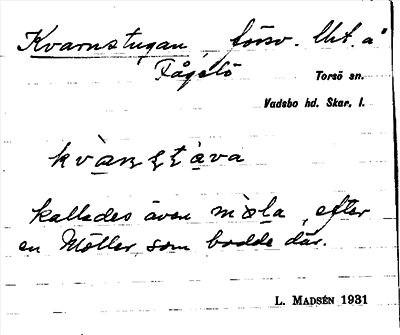 Kvarnstugan, torsv. Utt. å
Fågelö
Torsö sn.
Vadsbo hd. Skar. l.
kvànstàva
kallades även mòla, efter
en Möller som bodde där.
L. MADSÉN 1931